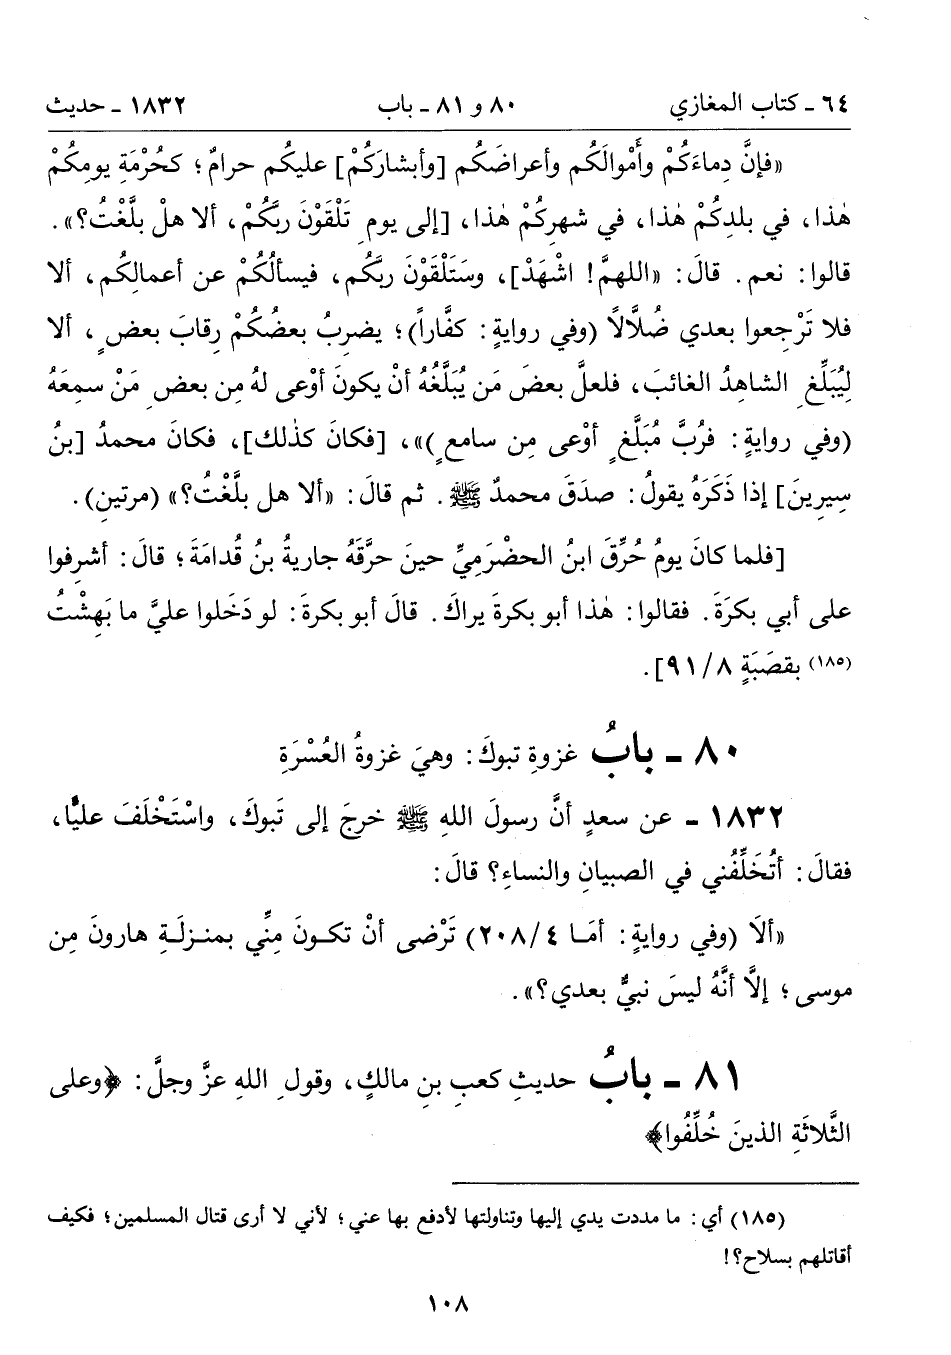 ٦٤ ـ كتاب المغازي ٨٠ و ٨١ ـ باب ١٨٣٢ ـ حديث
«فإنَّ دِماءَكُمْ وأَموْالَكُم وأعراضَكُم [وأبشارَكُمْ] عليكُم حرامٌ؛ كحُرْمَةِ يومِكُمْ
هٰذا، في بلدِكُمْ هٰذا، في شهرِكُمْ هٰذا، [إلى يومِ تَلْقَوْنَ ربَّكُمْ، ألا هلْ بلَّغْتُ؟».
قالوا: نعم. قالَ: «اللهمَّ! اشْهَدْ]، وسَتَلْقَوْنَ ربكُم، فيسألُكُمْ عن أعمالِكُم، ألا
فلا تَرْجعوا بعدي ضُلَّالًا (وفي روايةٍ: كفَّاراً)؛ يضربُ بعضُكُمْ رِقابَ بعضٍ، ألا
لِيُبَلِّغِ الشاهِدُ الغائبَ، فلعلَّ بعضَ مَن يُبَلَّغُهُ أنْ يكونَ أوْعى لهُ مِن بعضِ مَنْ سمِعَهُ
(وفي روايةٍ: فرُبَّ مُبَلَّغٍ أوْعى مِن سامعٍ)»، [فكانَ كذٰلك]، فكانَ محمدُ [بنُ
سِيرِينَ] إذا ذَكَرَهُ يقولُ: صدَقَ محمدٌ ﷺ. ثم قالَ: «ألا هل بلَّغْتُ؟» (مرتينِ).
[فلما كانَ يومُ حُرِّقَ ابنُ الحضْرَمِيِّ حينَ حرَّقَهُ جاريةُ بنُ قُدامَةَ؛ قالَ: أشرِفوا
على أبي بكرَةَ. فقالوا: هٰذا أبو بكرةَ يراكَ. قالَ أبو بكرةَ: لو دَخَلوا عليَّ ما بَهِشْتُ
(١٨٥) بقصَبَةٍ ٨/ ٩١].
٨٠ ـ بابُ غزوةِ تبوكَ: وهيَ غزوةُ العُسْرَةِ
١٨٣٢ ـ عن سعدٍ أنَّ رسولَ اللهِ ﷺ خرجَ إلى تَبوكَ، واسْتَخْلَفَ عليًّا،
فقالَ: أتُخَلِّفُني في الصبيانِ والنساءِ؟ قالَ:
«ألَا (وفي روايةٍ: أمَا ٤/ ٢٠٨) تَرْضى أنْ تكونَ مِنِّي بمنزلَةِ هارونَ مِن
موسى؛ إلَّا أنَّهُ ليسَ نبيٌّ بعدي؟».
٨١ ـ بابُ حديثِ كعبِ بنِ مالكٍ، وقولِ اللهِ عزَّ وجلَّ: ﴿وعلى
الثَّلاثَةِ الذينَ خُلِّفُوا﴾
(١٨٥) أي: ما مددت يدي إليها وتناولتها لأدفع بها عني؛ لأني لا أرى قتال المسلمين؛ فكيف
أقاتلهم بسلاح؟!
١٠٨